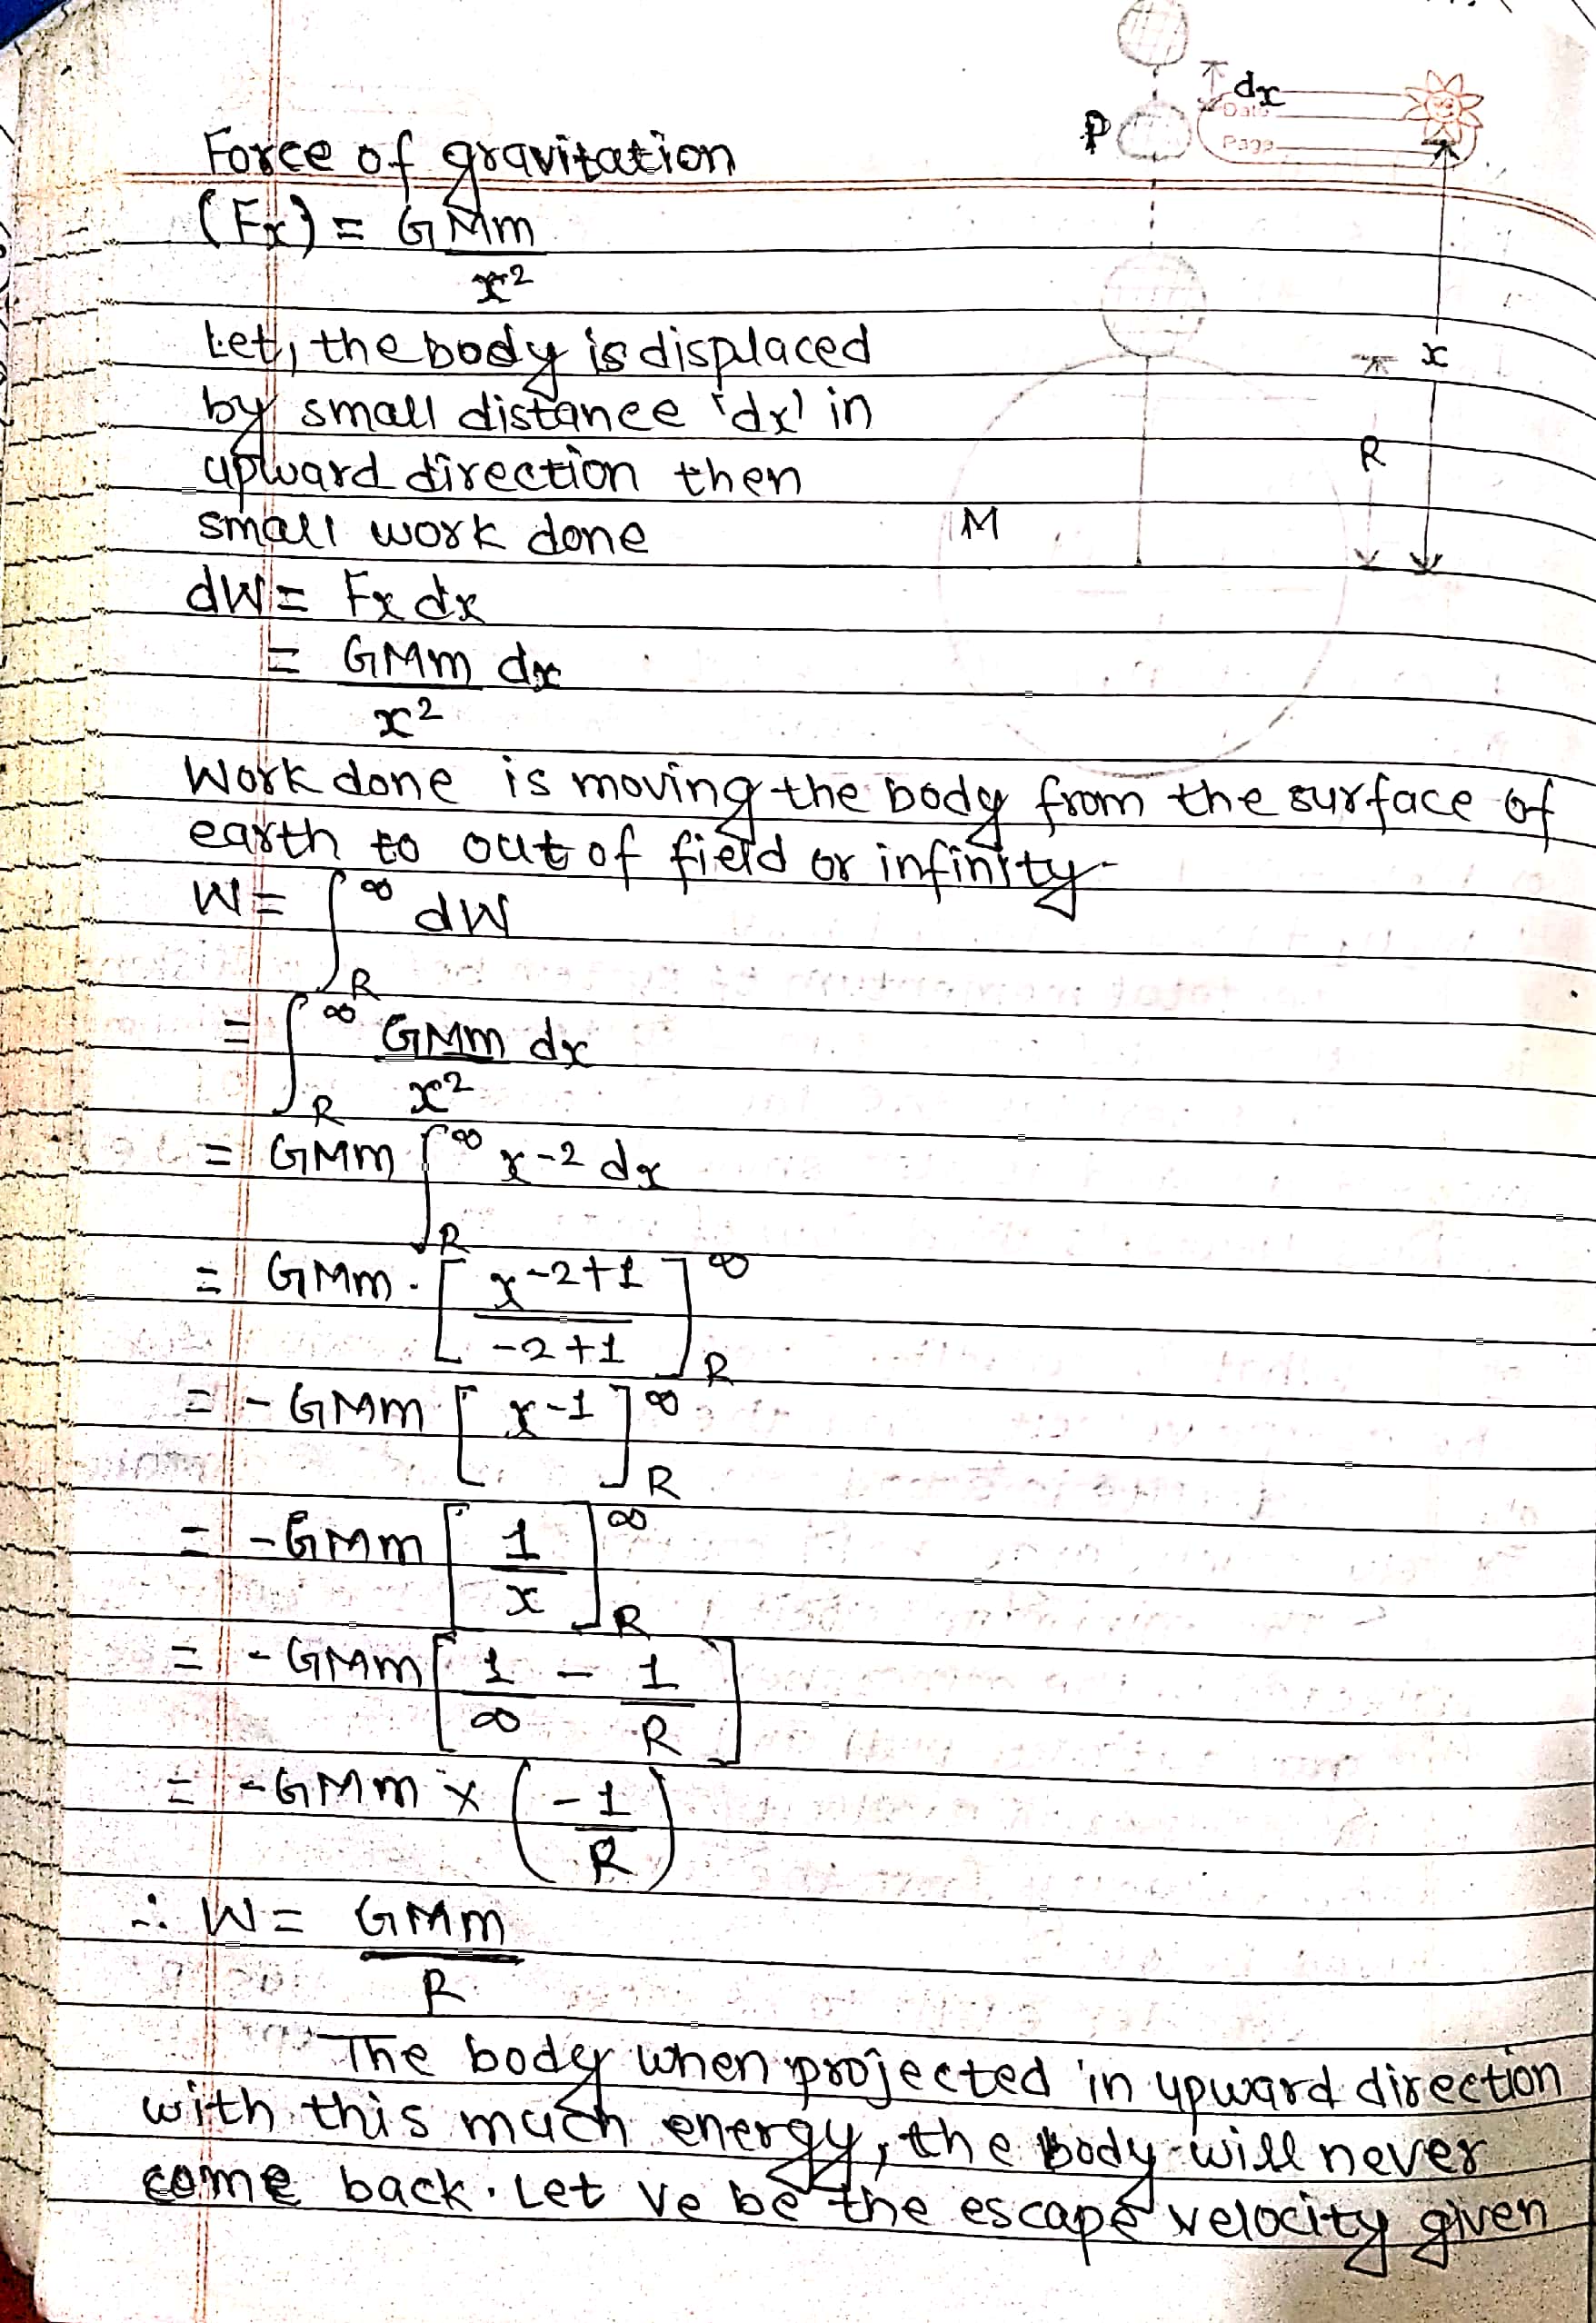 dx
Date
Page
P
Force of gravitation
(Fx) = GMm
x²
x
Let, the body is displaced
by small distance 'dx' in
R
upward direction then
small work done
M
dW = Fx dx
= GMm dx
x²
Work done is moving the body from the surface of
earth to out of field or infinity
W = ∫ ∞ dW
R
= ∫ ∞ GMm dx
R x²
= GMm ∫ ∞ x-2 dx
R
= GMm . [ x-2+1 ] ∞
-2+1 R
= - GMm [ x-1 ] ∞
R
= - GMm [ 1 ] ∞
x R
= - GMm [ 1 - 1 ]
∞ R
= - GMm x ( - 1 )
R
∴ W = GMm
R
The body when projected in upward direction
with this much energy, the body will never
come back. Let ve be the escape velocity given